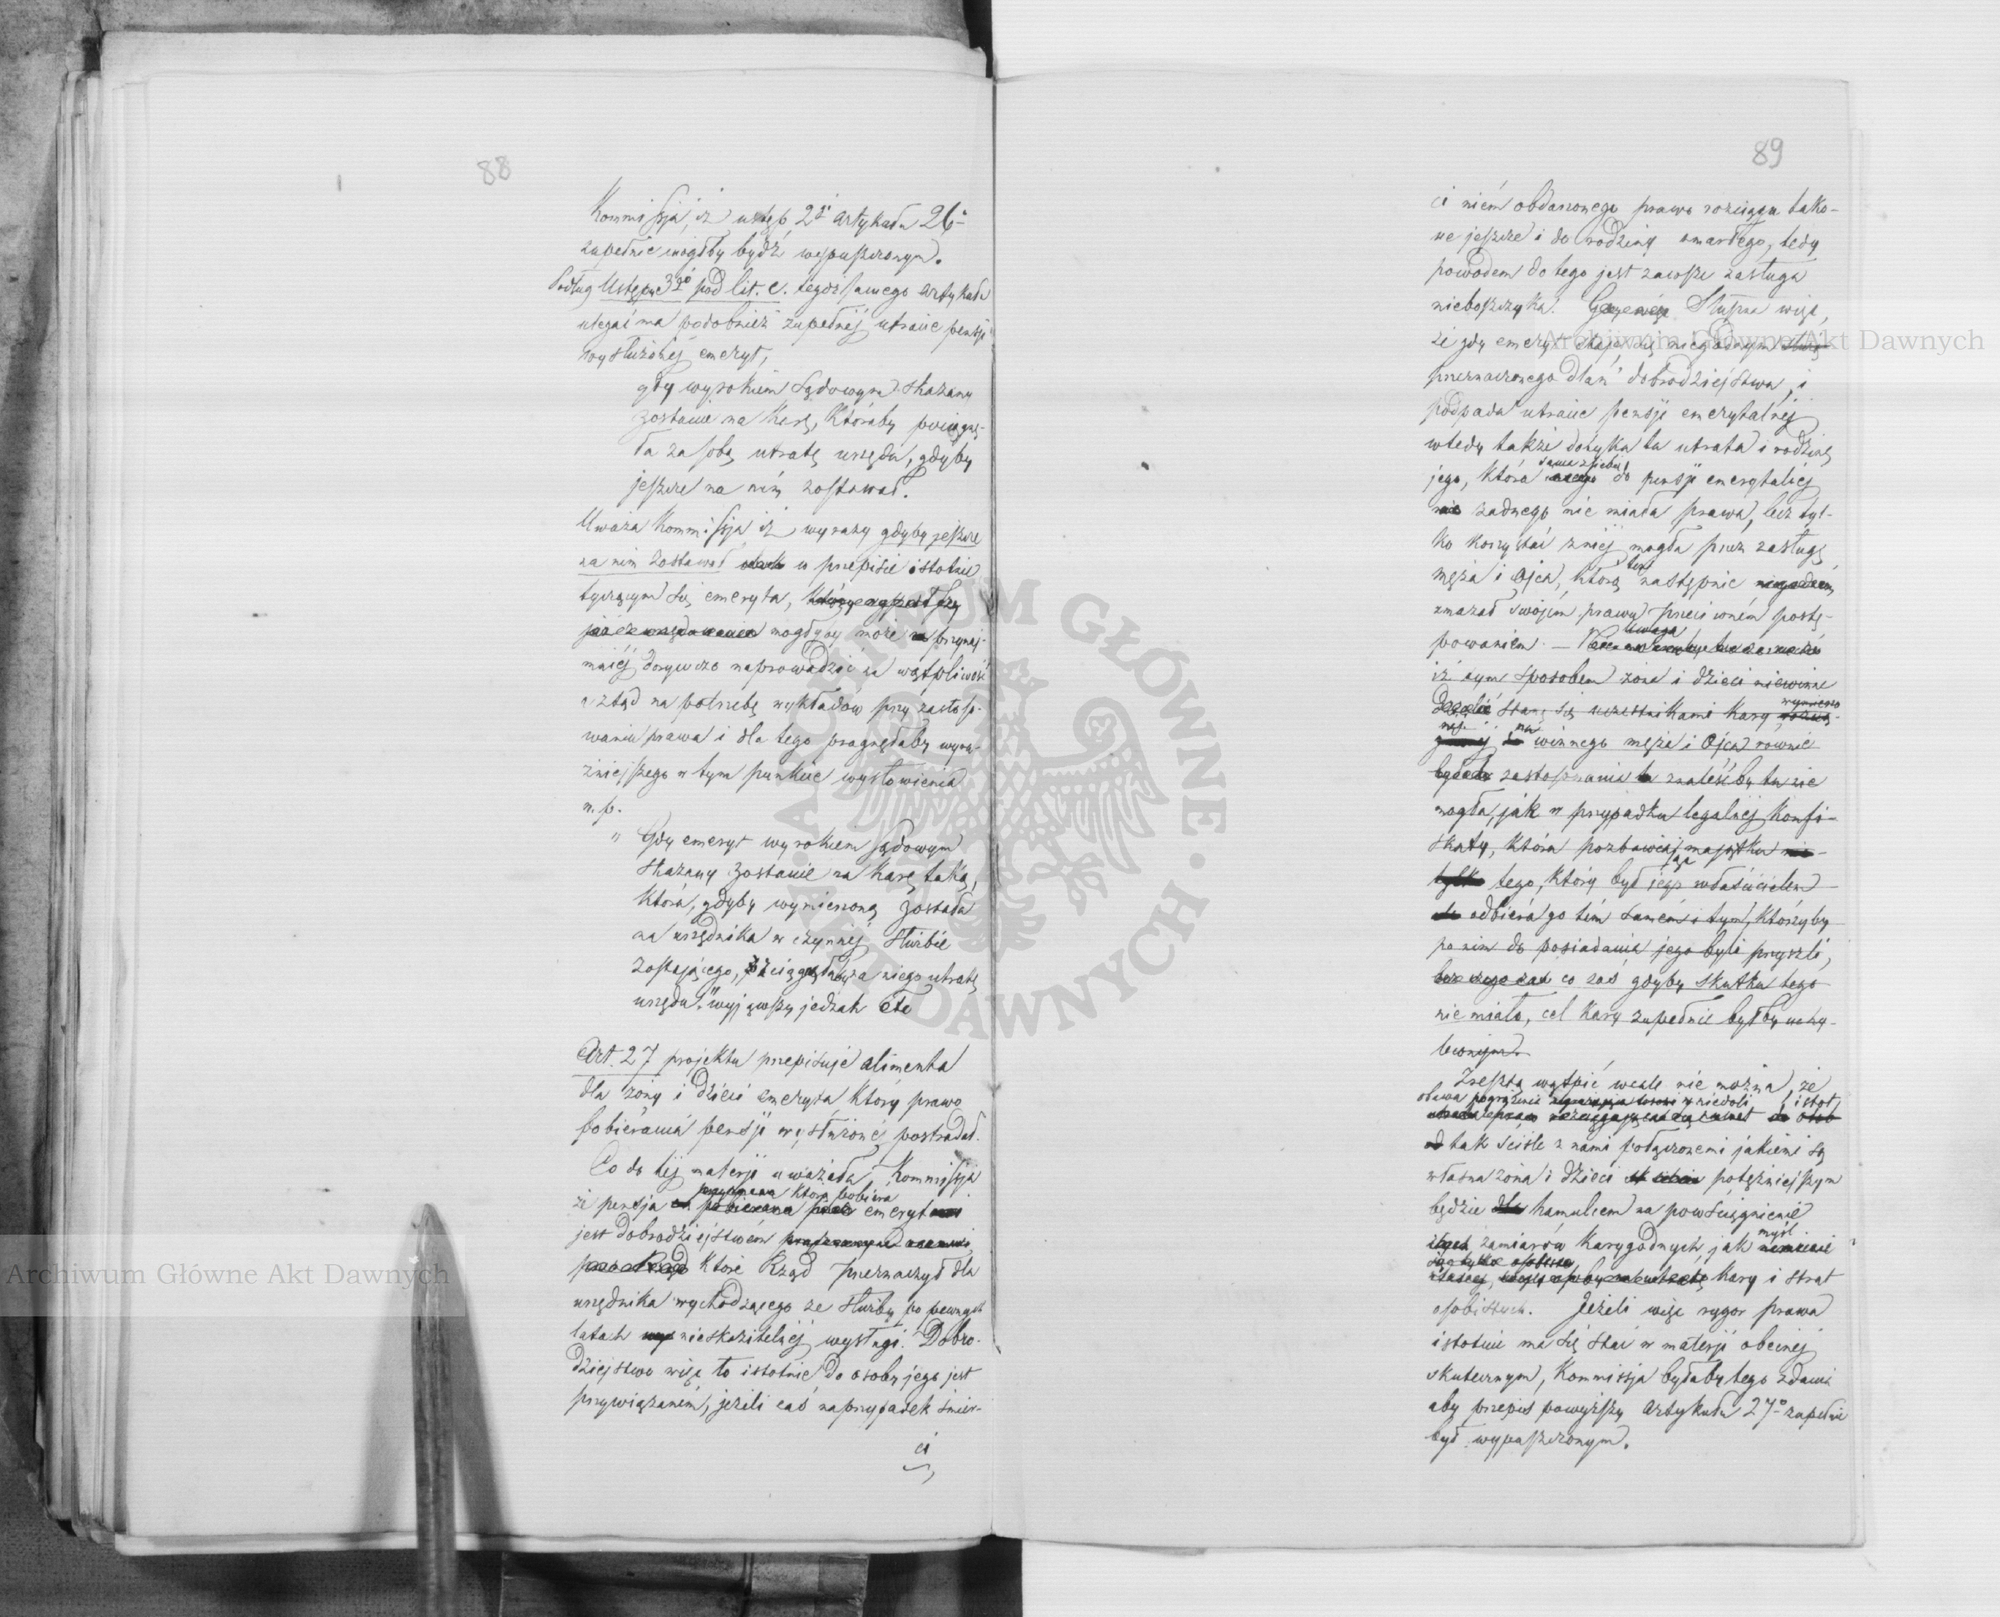 88
Kommissja, iż ustęp 2gi artykułu 26o
zupełnie mógłby bydź wypuszczonym.
Podług Ustępu 3go pod lit. c. tegoż samego artykułu
ulegać ma podobnież zupełnej utracie pensji
wysłużonej emeryt,
gdy wyrokiem sądowym skazany
zostanie na karę, któraby pociągnę-
ła za sobą utratę urzędu, gdyby
jeszcze na nim zostawał.
Uważa Kommissja iż wyrazy gdyby jeszcze
na nim zostawał w przepisie istotnie
tyczącym się emeryta,
mogłyby może przynaj-
mniej dorywczo naprowadzać na wątpliwość
a ztąd na potrzebę wykładów przy zastoso-
waniu prawa i dla tego pragnęłaby wyra-
źniejszego w tym punkcie wysłowienia
n. p.
" Gdy emeryt wyrokiem sądowym
skazany zostanie na karę taką,
która, gdyby wymierzoną została
na urzędnika w czynnej służbie
zostającego, ściągnęłaby na niego utratę
urzędu." wyjąwszy jednak etc
Art. 27 projektu przepisuje alimenta
dla żony i dzieci emeryta który prawo
pobierania pensji wysłużonej postradał.
Co do tej materji uważała Kommissja
że pensja którą pobiera emeryt
jest dobrodziejstwem
które Rząd przeznaczył dla
urzędnika wychodzącego ze służby po pewnych
latach nieskazitelnej wysługi. Dobro-
dziejstwo więc to istotnie do osoby jego jest
przywiązaném, jeżeli zaś na przypadek śmier-
ci
89
ci niém obdarzonego prawo rozciąga tako-
we jeszcze i do rodziny zmarłego, tedy
powodem do tego jest zawsze zasługa
nieboszczyka. Słuszna więc,
że gdy emeryt staje się niegodnym
przeznaczonego dlań dobrodziejstwa, i
podpada utracie pensji emerytalnej
wtedy także dotyka ta utrata i rodzinę
jego, która sama z siebie do pensji emerytalnej
żadnego nie miała prawa, lecz tyl-
ko korzystać z niej mogła przez zasługę
męża i ojca, którą ten następnie
zmazał swojém prawu przeciwném postę-
powaniem. — Uwaga
iż tym sposobem żona i dzieci niewinne
staną się uczestnikami kary wymierzo-
nej na winnego męża i ojca równie
zastosowania znaleśćby tu nie
mogła, jak w przypadku legalnej konfi-
skaty, która pozbawiając majątku
tego, który był jego właścicielem
odbiera go tém samém i tym, którzyby
po nim do posiadania jego byli przyszli,
co zaś gdyby skutku tego
nie miało, cel kary zupełnie byłby uchy-
bionym.
Zresztą wątpić wcale nie można, że
obawa pogrążenia w niedoli istot,
tak ściśle z nami połączonemi jakiemi są
własna żona i dzieci potężniejszym
będzie hamulcem na powściągnienie
zamiarów karygodnych, jak myśl
kary i strat
osobistych. Jeżeli więc rygor prawa
istotnie ma się stać w materji obecnej
skutecznym, Kommissja byłaby tego zdania
aby przepis powyższy artykułu 27o zupełnie
był wypuszczonym.
Archiwum Główne Akt Dawnych
Archiwum Główne Akt Dawnych
ARCHIWUM GŁÓWNE AKT DAWNYCH